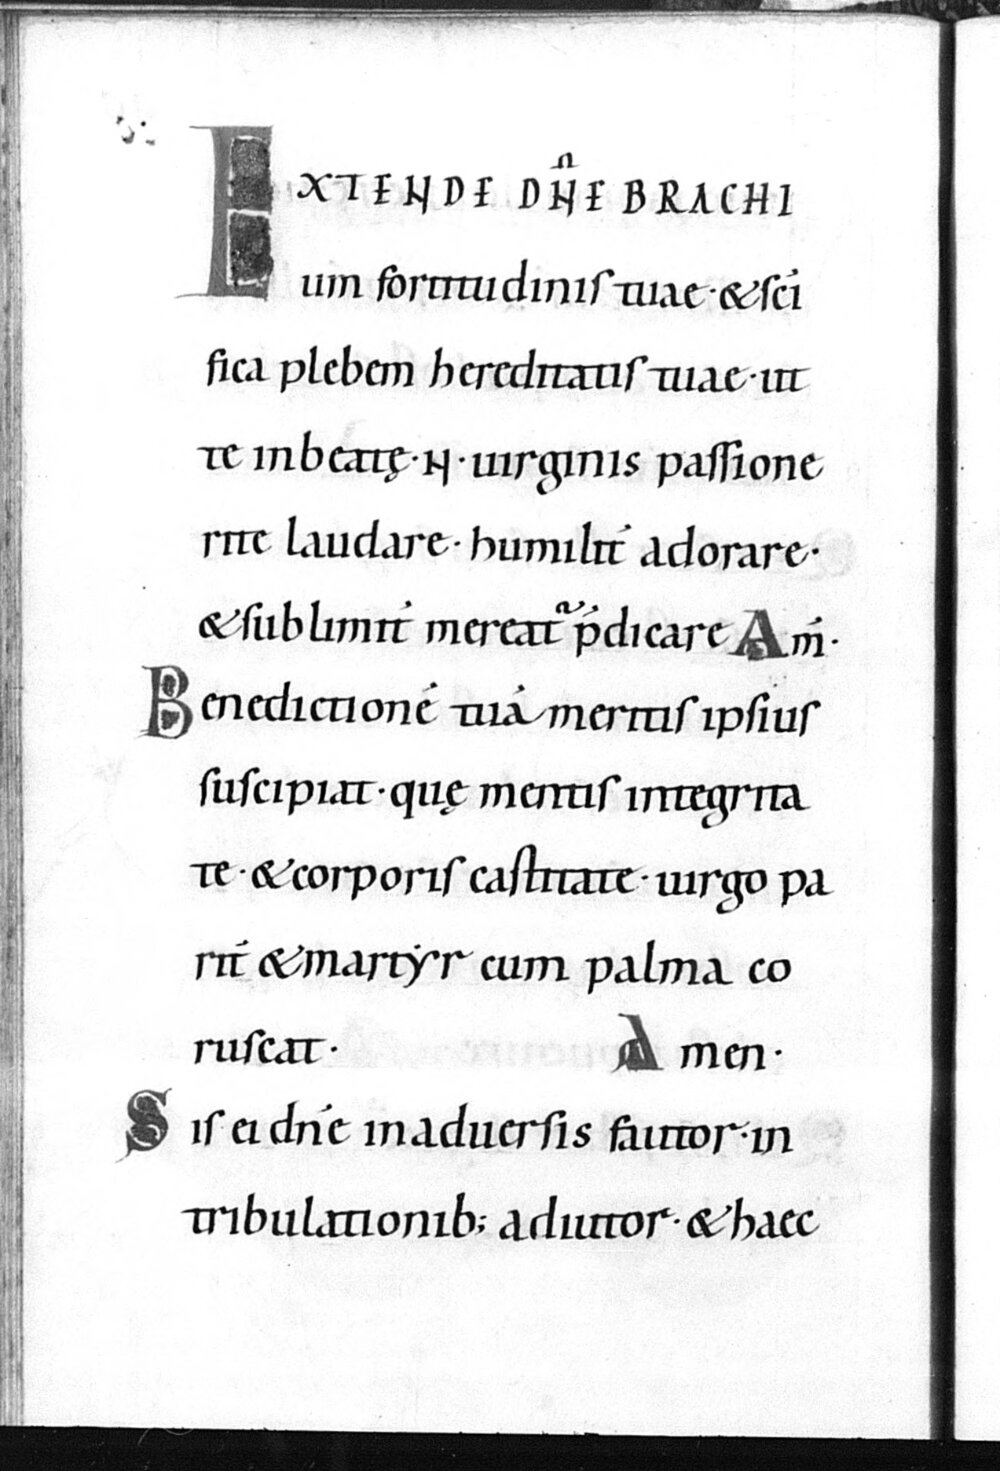 EXTENDE DN̄E BRACHI
um fortitudinis tuae · & sc̄i
fica plebem hereditatis tuae · ut
te in beatę · N · uirginis passione
rite laudare · humilit̄ adorare ·
& sublimit̄ mereat᷑ p̄dicare Am̄ ·
Benedictionē tuā meritis ipsius
suscipiat · quę mentis integrita
te · & corporis castitate · uirgo pa
rit̄ & martẏr cum palma co
ruscat · Amen ·
Sis ei dn̄e in aduersis fautor · in
tribulationib; adiutor · & haec